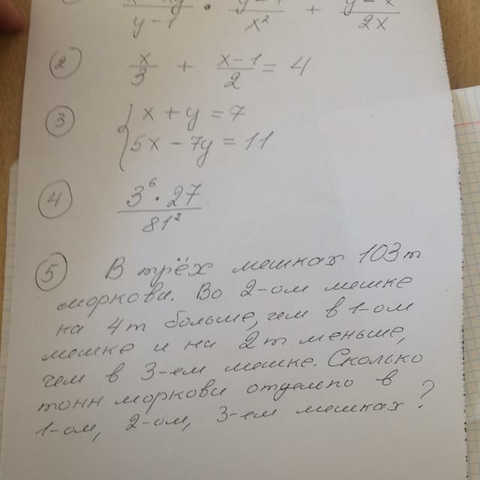 y-1 x² + 2x
② x/3 + (x-1)/2 = 4
③ { x + y = 7
5x - 7y = 11
④ (3⁶ · 27)/81²
⑤ В трёх мешках 103т
моркови. Во 2-ом мешке
на 4т больше, чем в 1-ом
мешке и на 2т меньше,
чем в 3-ем мешке. Сколько
тонн моркови отдельно в
1-ом, 2-ом, 3-ем мешках?